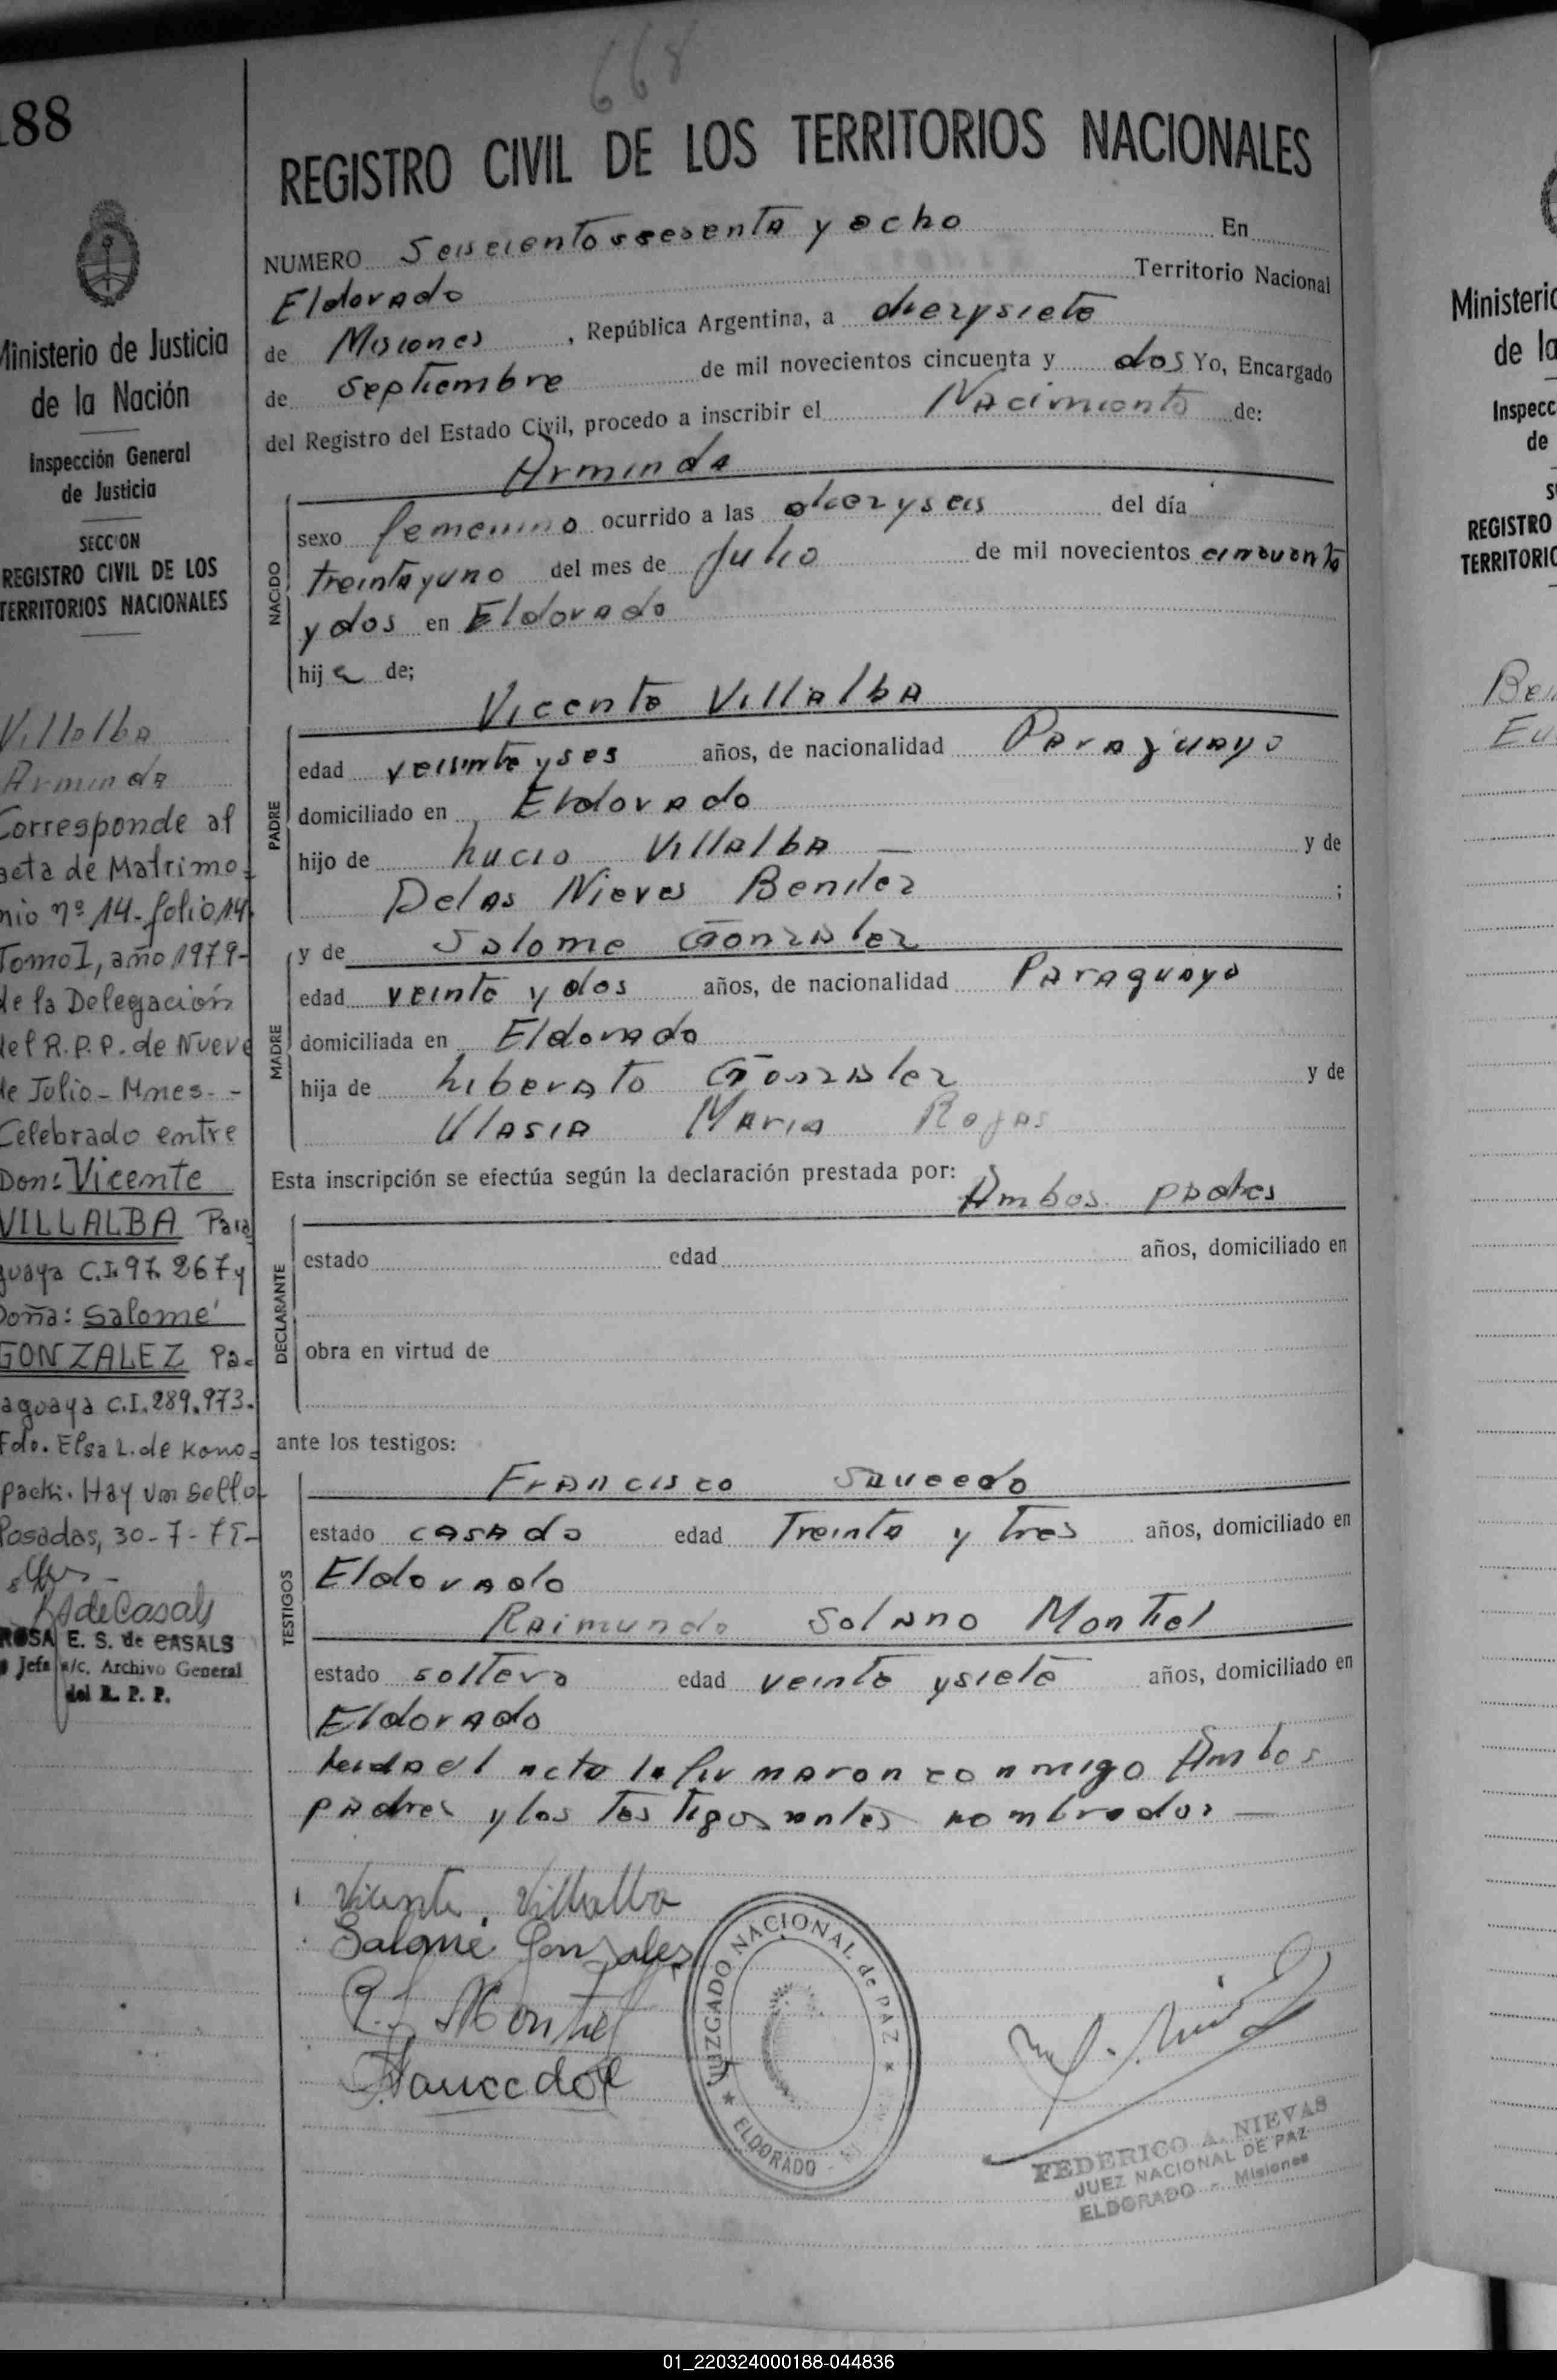 668
188
REGISTRO CIVIL DE LOS TERRITORIOS NACIONALES
NUMERO Seiscientos sesenta y ocho En
Eldorado Territorio Nacional
de Misiones , República Argentina, a diezysiete
de septiembre de mil novecientos cincuenta y dos Yo, Encargado
del Registro del Estado Civil, procedo a inscribir el Nacimiento de:
Arminda
NACIDO
sexo femenino ocurrido a las diezyseis del día
treintayuno del mes de Julio de mil novecientos cincuenta
y dos en Eldorado
hija de;
Vicente Villalba
PADRE
edad años, de nacionalidad Paraguayo
domiciliado en Eldorado
hijo de Lucio Villalba — y de
Delas Nieves Benitez ;
y de Salome Gonzalez
MADRE
edad veinte y dos años, de nacionalidad Paraguaya
domiciliada en Eldorado
hija de Liberato Gonzalez y de
Ulasia Maria Rojas
Esta inscripción se efectúa según la declaración prestada por:
Ambos padres
DECLARANTE
estado edad años, domiciliado en
obra en virtud de
ante los testigos:
Francisco Saucedo
TESTIGOS
estado casado edad Treinta y Tres años, domiciliado en
Eldorado
Raimundo Solano Montiel
estado soltero edad veinte ysiete años, domiciliado en
Eldorado
Leida el acta la firmaron conmigo Ambos
padres y los Testigos antes nombrados —
Vicente Villalba
Salome Gonzales
Montiel
Saucedo
JUZGADO NACIONAL de PAZ
ELDORADO
FEDERICO A. NIEVAS
JUEZ NACIONAL DE PAZ
ELDORADO - Misiones
Ministerio de Justicia
de la Nación
Inspección General
de Justicia
SECCION
REGISTRO CIVIL DE LOS
TERRITORIOS NACIONALES
Villalba
Arminda
Corresponde al
acta de Matrimo-
nio nº 14-folio 14
Tomo I, año 1979-
de la Delegación
del R.P.P. de Nueve
de Julio - Mnes. -
Celebrado entre
Don: Vicente
VILLALBA Para
guaya C.I. 97.267 y
Doña: Salomé
GONZALEZ Pa-
raguaya C.I. 289.973.
Fdo. Elsa L. de Kono-
packi. Hay un Sello
Posadas, 30-7-
R S de Casals
ROSA E. S. de CASALS
Jefa a/c. Archivo General
del R. P. P.
Ministerio
de la
Inspecc
de
S
REGISTRO
TERRITORIO
Ben
Eu
01_220324000188-044836